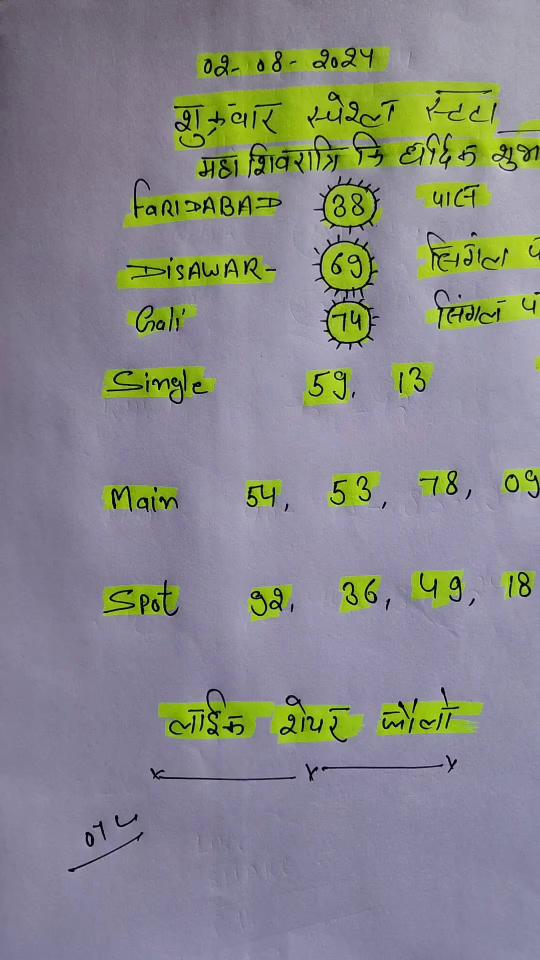 02-08-2024
शुक्रवार स्पेशल सट्टा
महा शिवरात्रि कि हार्दिक
FARIDABAD 38 पास
DISAWAR- 69 सिगंल
Gali 74 सिंगल
Single 59, 13
Main 54, 53, 78, 09
Spot 92, 36, 49, 18
लाईक शेयर फौलो